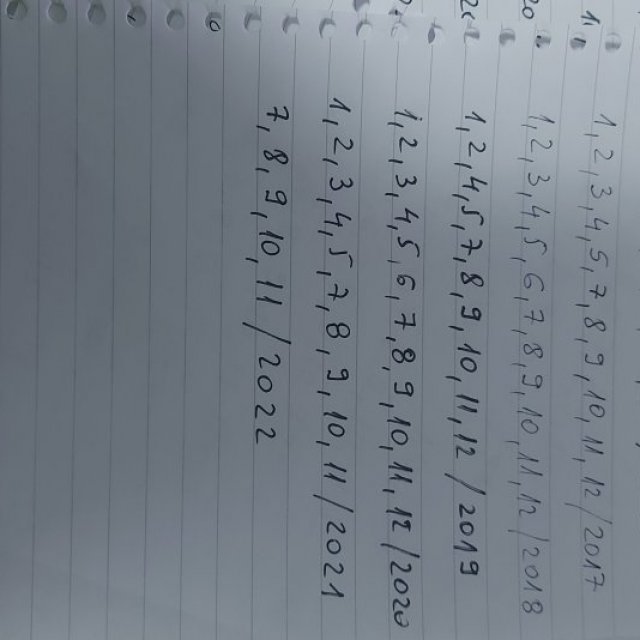 1, 2, 3, 4, 5, 7, 8, 9, 10, 11, 12 / 2017
1, 2, 3, 4, 5, 6, 7, 8, 9, 10, 11, 12 / 2018
1, 2, 4, 5, 7, 8, 9, 10, 11, 12 / 2019
1, 2, 3, 4, 5, 6, 7, 8, 9, 10, 11, 12 / 2020
1, 2, 3, 4, 5, 7, 8, 9, 10, 11 / 2021
7, 8, 9, 10, 11 / 2022